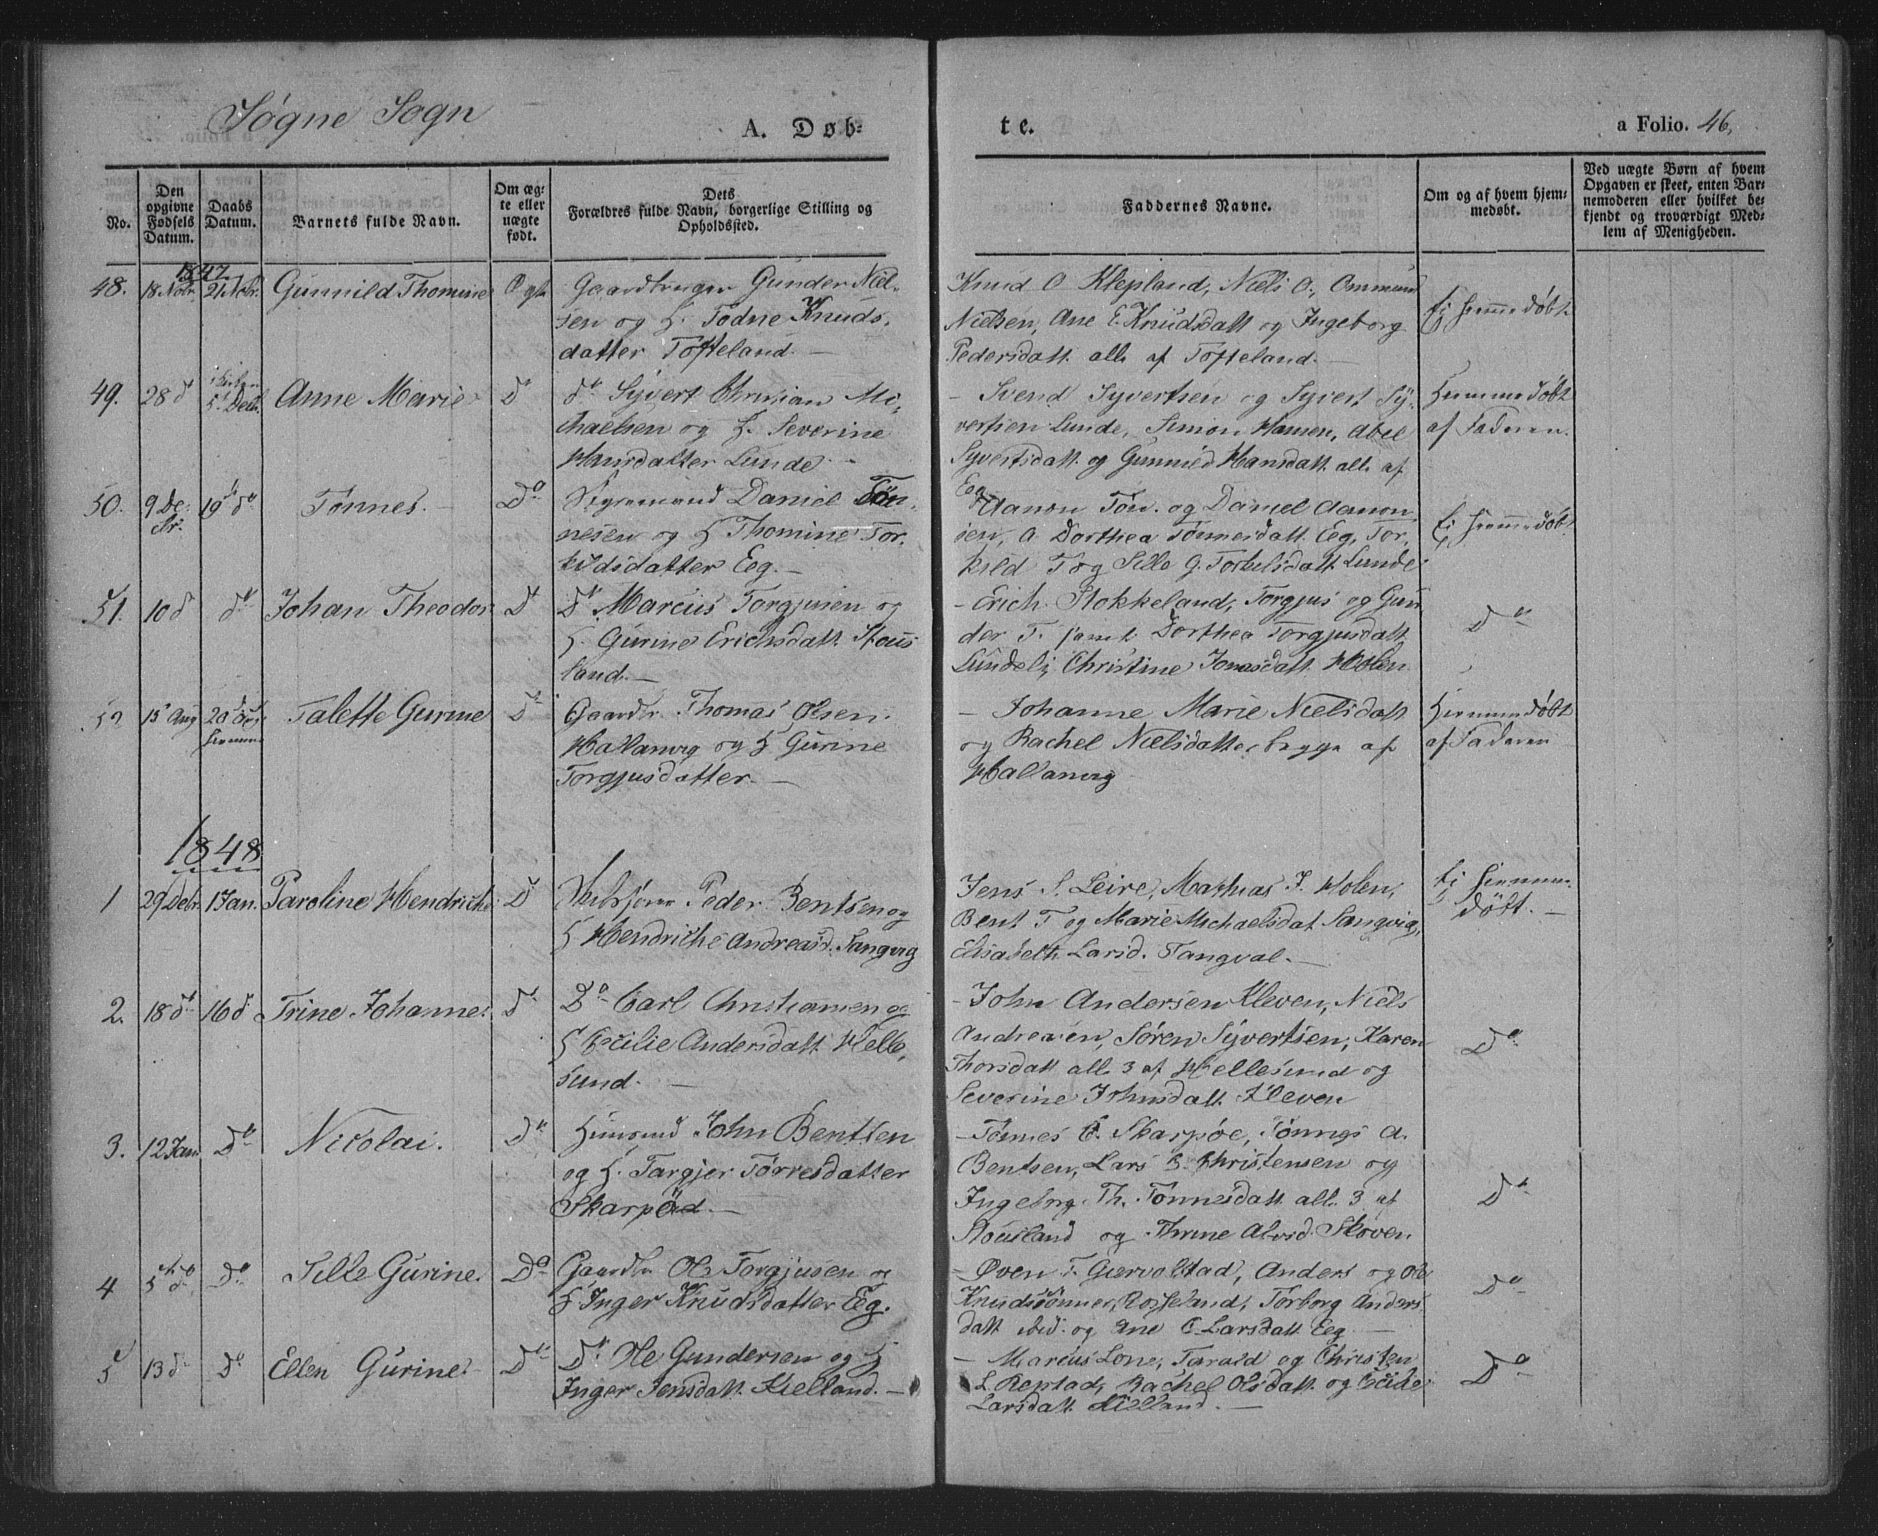 Søgne Sogn
A. Døb-
te.
a Folio. 46,
No.
Den opgivne Fødsels Datum.
Daabs Datum.
Barnets fulde Navn.
Om æg- te eller uægte født.
Dets Forældres fulde Navn, borgerlige Stilling og Opholdssted.
Faddernes Navne.
Om og af hvem hjem- medøbt.
Ved uægte Børn af hvem
Opgaven er skeet, enten Bar-
nemoderen eller hvilket be-
kjendt og troværdigt Med-
lem af Menigheden.
1847.
48. 18 Nobr. 21 Nobr. Gunnild Thomine Ægte
Gaardbruger Gunder Niel-
sen og H. Todne Knuds-
datter Tofteland. —
Knud O Klepland, Niels O., Ommund
Nielsen, Ane E. Knudsdatt og Ingeborg
Pedersdatt alle af Tofteland. —
Ei hjemmedøbt
49. 28 d 5 Decbr. Anne Marie do
do Syvert Christian Mi-
chaelsen og H. Severine
Hansdatter Lunde —
— Svend Syvertsen og Syvert Sy-
vertsen Lunde, Simon Hansen, Abel
Syvertsdatt og Gunnild Hansdatt alle af
Eg
Hjemmedøbt
af Faderen.
50. 9 De- br. 19 do Tønnes. — Do
Daniel Tøn-
nesen og H Thomine Tor-
kildsdatter Eeg. —
Aanon Tøn. og Daniel Aanon-
sen, A Dorthea Tønnesdatt Eeg, Tor-
kild T og Sille G. Torkelsdatt Lunde
Ei hjemmedøbt
51. 10 d do Johan Theodor Do
Do Marcus Torgjusen og
H. Gurine Erichsdatt Stous
land. —
— Erich Stokkeland, Torgjus og Gun-
der T. samt Dorthea Torgjusdatt
Lundeli, Christine Jonasdatt Holen
Do
52 15 Aug 20 Talette Gurine Do
Gaardbr Thomas Olsen
Hallanvig og H Gurine
Torgjusdatter. —
— Johanne Marie Nielsdatt
og Rachel Nielsdatter begge af
Hallanvig
Hjemmedøbt
af Faderen
1848
1 29 Debr. 1 Jan. Paroline Hendriche Do
Peder Bentsen og
H Hendriche Andreasd. Sangvig
Jens S. Leire, Mathias J. Holen,
Bent T og Marie Michaelsdat Sangvig,
Elisabeth Larsd. Tangval. —
Ei hjemme-
døbt. —
2. 18 do 16 d Trine Johanne. Do
Do Carl Christiansen og
H Cecilie Andersdatt Helle-
sund. —
— John Andersen Kleven, Niels
Andreasen, Søren Syvertsen, Karen
Thorsdatt alle 3 af Hellesund og
Severine Johnsdatt Kleven
Do
3. 12 Jan. Do Nicolai. Do
Huusmd John Bentsen
og H. Targjer Tørresdatter
Skarpød. —
— Tønnes C. Skarpøe, Tønnes A.
Bentsen, Lars B. Christensen og
Ingeborg Th. Tønnesdatt alle 3 af
Stousland og Thrine Alvid. Skoven.
Do
4 5 do Do Sille Gurine. Do
Gaardbr Ole Torgjusen og
H Inger Knudsdatter Eeg.
— Øven T. Gurvolstad, Anders og Ole
Knudssønner, Rosseland, Torborg Anders
datt ibid. og Ane C. Larsdatt Eeg —
Do
5 13 d Do Ellen Gurine. Do
Do Ole Gundersen og H
Inger Jensdatt Kielland. —
— Marcus Lone, Tarald og Christen
L Repstad, Rachel Olsdatt og Cecilie
Larsdatt Kielland. —
Do